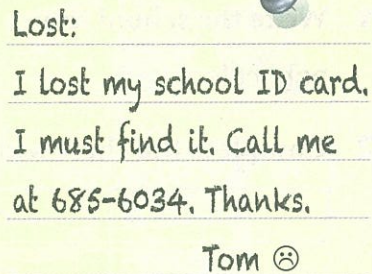 Lost:
I lost my school ID card.
I must find it. Call me
at 685-6034. Thanks.
Tom ☹